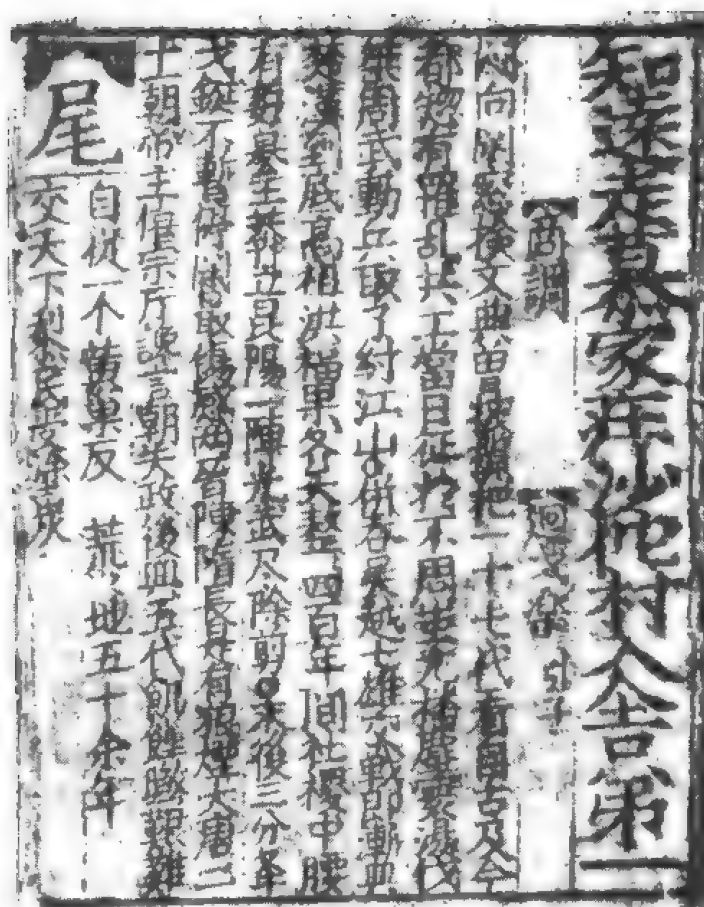 知遠走慕家庄沙佗村入舍第一
商調 回戈樂
悶向閑窓檢文典曾披攬把一十七代看自古及今
都惣有禍乱共工當日征於不周蚩尤播塵寰湯伐
桀周武動兵取了紂江山併吞吳越七雄交戰即漸興
楚漢到底高祖洪福果齐天整四百年間社稷中腰
有奸臣王莽立昆陽一陣光武尽除剪末後三分舉
戈鋋不暫停閑最傷感兩晉陳隋長是有狼煙大唐二
十一朝帝主僖宗听讒言朝失政後興五代飢饉艱難
尾 自從一个黃巢反 荒〻地五十余年
交天下黎民受塗炭